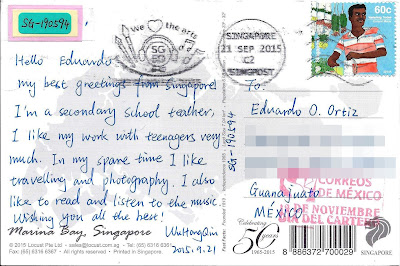 SG-190594
we ♡ the arts
SG
50
SINGAPORE
21 SEP 2015
C2
SINGPOST
60c
Hello Eduardo
my best greetings from singapore!
I'm a secondary school teacher,
I like my work with teenagers very
much. In my spare time I like
travelling and photography. I also
like to read and listen to the music.
Wishing you all the best!
WuHongQin
2015.9.21
Marina Bay, Singapore
© 2015 Locust Pte Ltd - sales@locust.com.sg - Tel: (65) 6316 6361
Fax: (65) 6316 6367 - All rights reserved.
SG-190594
To:
Eduardo O. Ortiz
Guanajuato
MÉXICO
CORREOS
DE MÉXICO
12 DE NOVIEMBRE
DIA DEL CARTERO
Celebrating
50 years
1965-2015
8 886372 700029